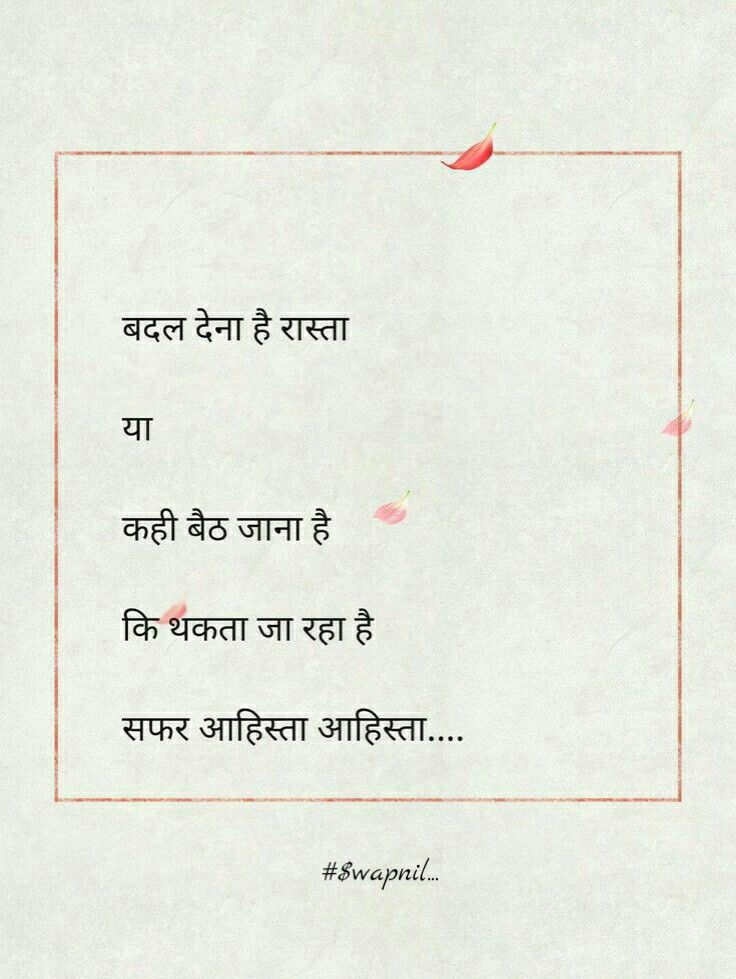 बदल देना है रास्ता
या
कही बैठ जाना है
कि थकता जा रहा है
सफर आहिस्ता आहिस्ता....
#$wapnil...